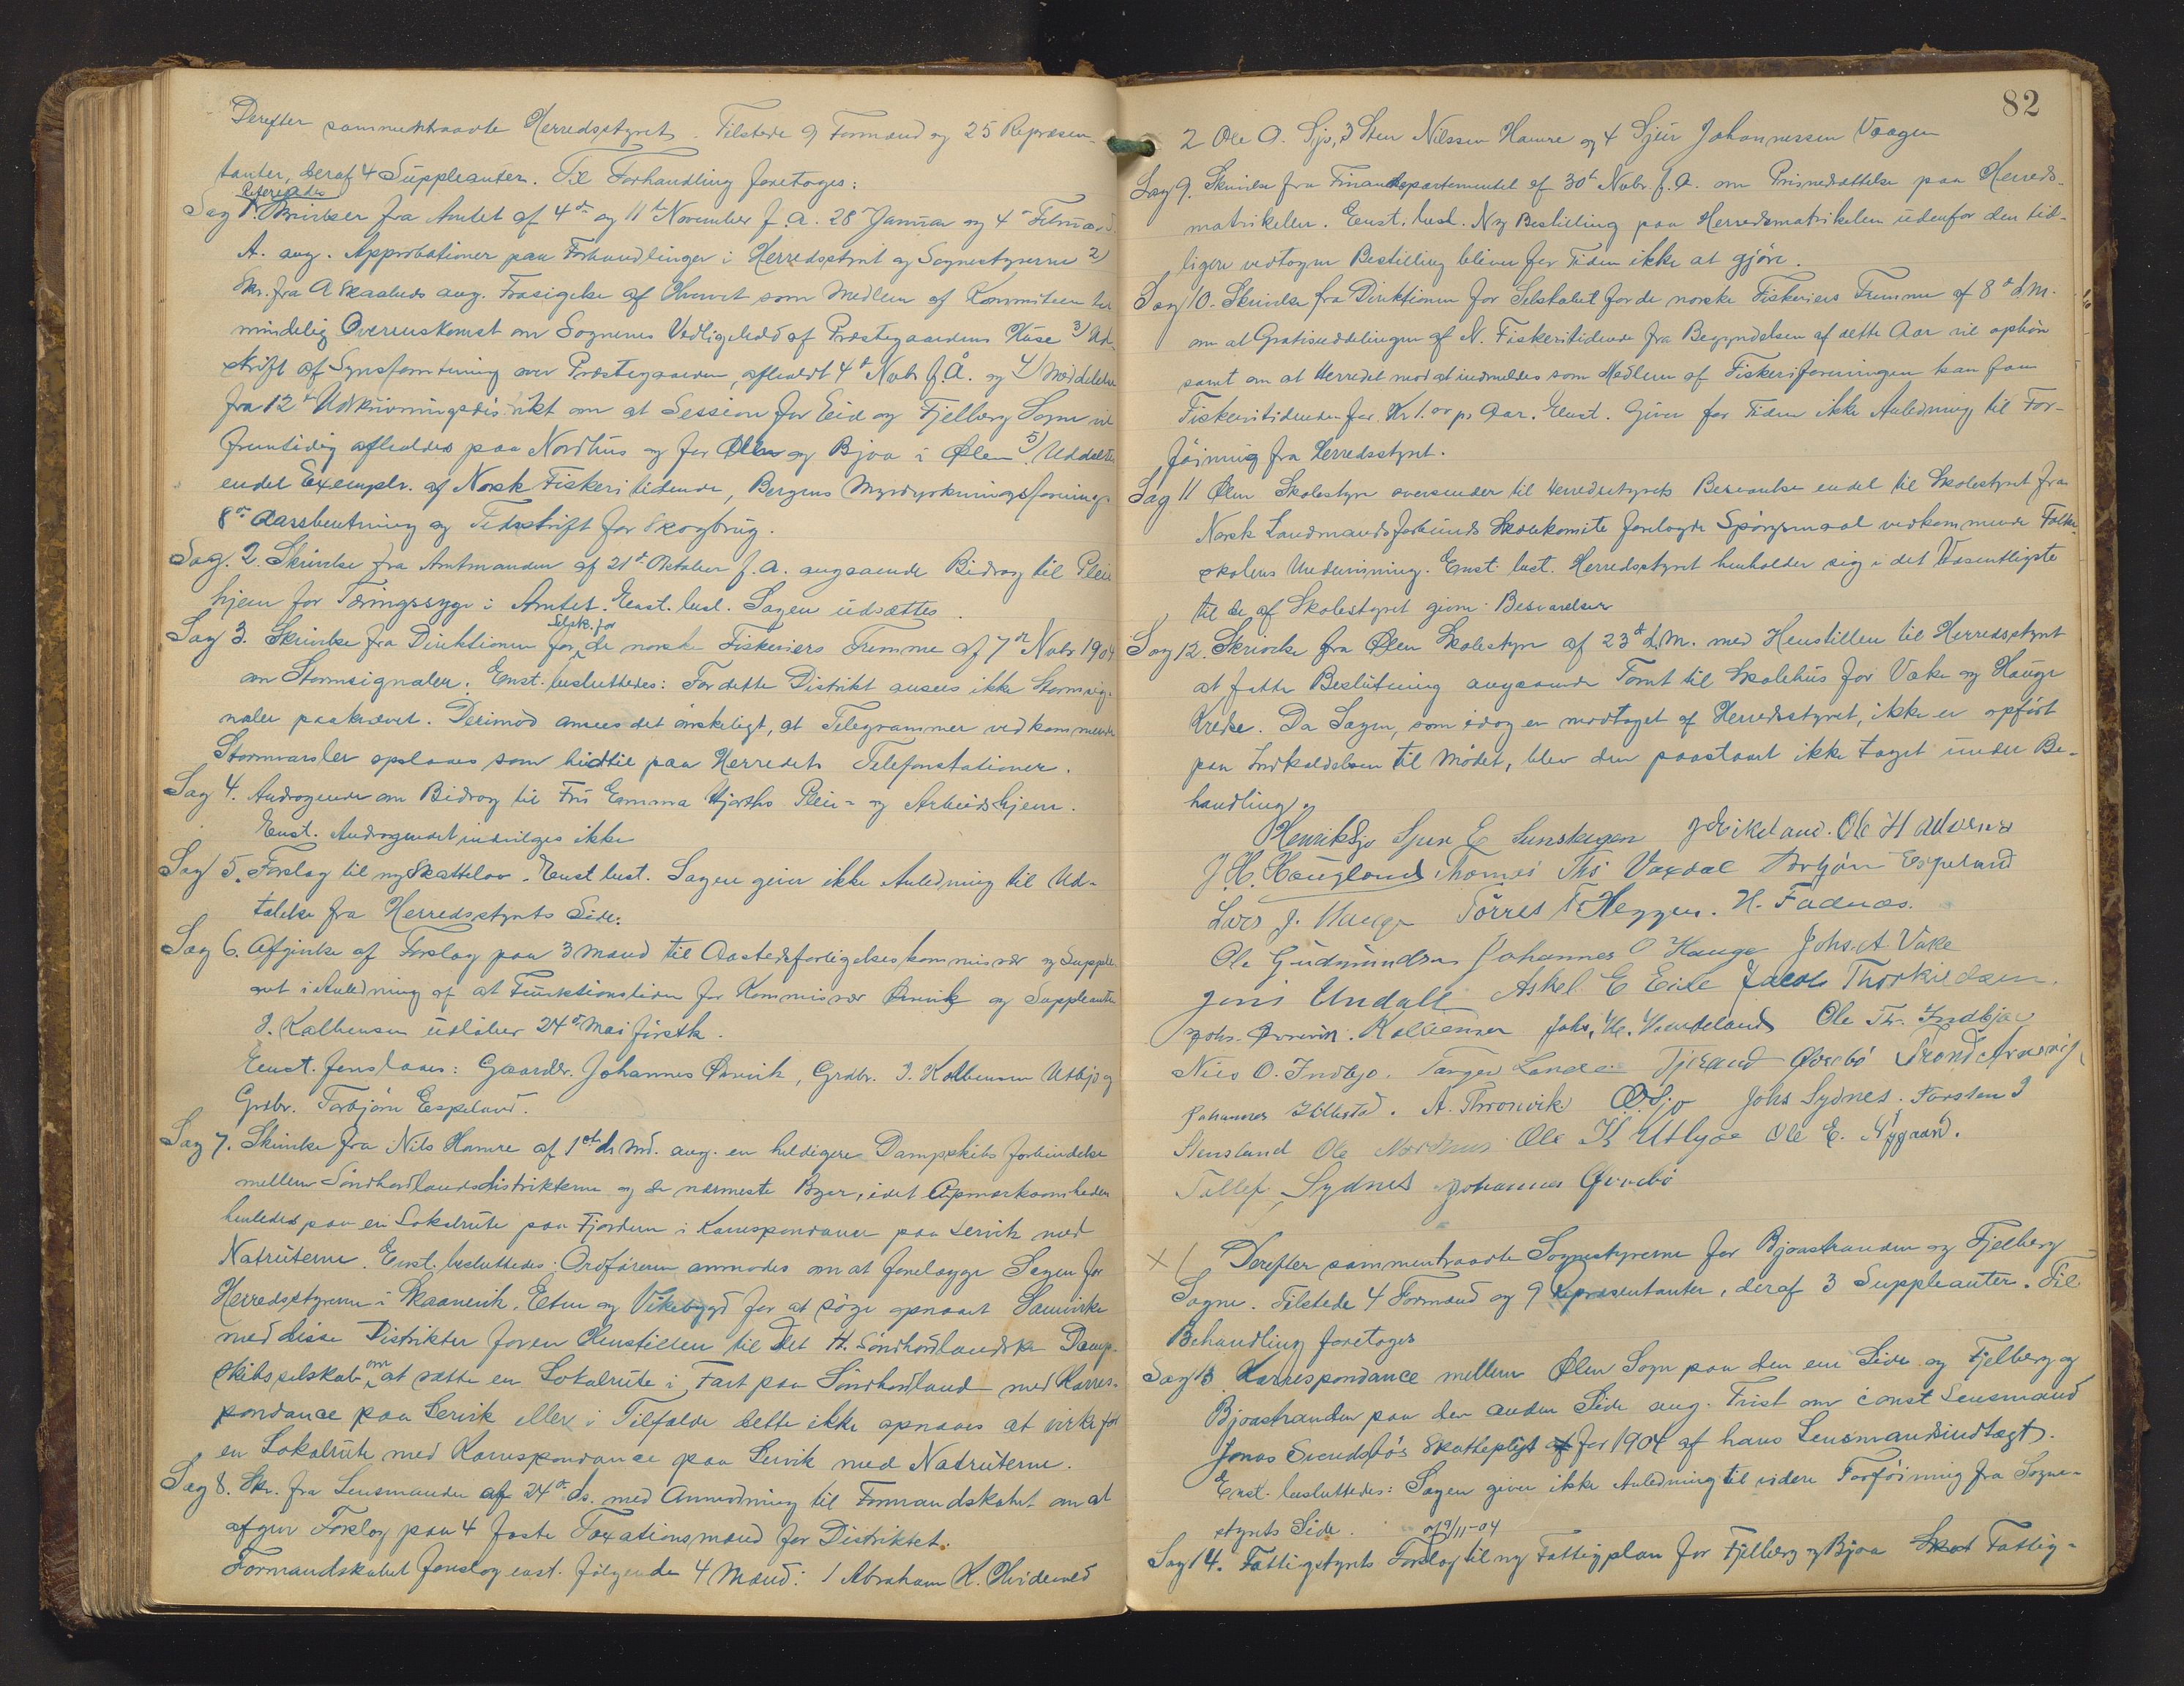 Derefter sammentraadte Herredsstyret. Tilstede 9 Formænd og 25 Repræsen-
tanter, deraf 4 Suppleanter. Til Forhandling foretoges:
Refereredes
Sag 1. Skrivelser fra Amtet af 4de og 11te November f. A. 28de Januar og 4de Februar d.
A. ang. Approbationer paa Forhandlinger i Herredsstyret og Sognestyrerne 2)
Skr. fra A Skasheds ang. Frasigelse af Hvervet som Medlem af Kommiteen til
mindelig Overenskomst om Sognenes Vedligehold af Præstegaardens Huse 3) Ud-
skrift af Synsforretning over Præstegaarden, afholdt 4de Novbr f. Å. og 4) Meddelelse
fra 12te Udskrivningsdistrikt om at Session for Eid og Fjelberg Sogne vil
fremtidig afholdes paa Nordhus og for Ølen og Bjoa i Ølen 5) Uddeltes
endel Exemplr. af Norsk Fiskeritidende, Bergens Myrdyrkningsforenings
8de Aarsberetning og Tidsskrift for Skogbrug.
Sag. 2. Skrivelse fra Amtmanden af 21de Oktober f. A. angaaende Bidrag til Pleie-
hjem for Tæringssyge i Amtet. Enst. besl. Sagen udsættes
Selsk. for
Sag 3. Skrivelse fra Direktionen for de norske Fiskeriers Fremme af 7de Novbr 1904
om Stormsignaler. Enst. besluttedes: For dette Distrikt ansees ikke Stormsig-
naler paakrævet. Derimod ansees det ønskeligt, at Telegrammer vedkommende
Stormvarsler opslaaes som hidtil paa Herredets Telefonstationer.
Sag 4. Andragende om Bidrag til Fru Emma Hjorths Pleie- og Arbeidshjem.
Enst. Andragendet indvilges ikke
Sag 5. Forslag til ny Skattelov. Enst besl. Sagen giver ikke Anledning til Ud-
talelse fra Herredsstyrets Side.
Sag 6. Afgivelse af Forslag paa 3 Mænd til Aastedsforligelseskommissær og Supple-
ant i Anledning af at Funktionstiden for Kommissær Ørnvik og Suppleanten
I. Kalbensen udløber 24de Mai førstk.
Enst. foreslaaes: Gaardbr. Johannes Ørnvik, Grdbr. I. Kalbensen Utbjo og
Grdbr. Torbjørn Espeland.
Sag 7. Skrivelse fra Nils Hamre af 1ste ds Md. ang. en heldigere Dampskibs forbindelse
mellem Søndhordlandsdistrikterne og de nærmeste Byer, idet Opmærksomheden
henledes paa en Lokalrute paa Fjordene i Korrespondance paa Lervik med
Natruterne. Enst. besluttedes: Ordføreren anmodes om at forelægge Sagen for
Herredsstyrerne i Skaanevik, Etne og Vikebygd for at søge opnaaet Samvirke
med disse Distrikter for en Henstillen til Det H. Søndhordlandske Damp-
skibsselskab om at sætte en Lokalrute i Fart paa Søndhordland med Korres-
pondance paa Lervik eller i Tilfælde dette ikke opnaaes at virke for
en Lokalrute med Korrespondance paa Lervik med Natruterne.
Sag 8. Skr. fra Lensmanden af 24de ds. med Anmodning til Formandskabet om at
afgive Forslag paa 4 faste Taxationsmænd for Distriktet.
Formandskabet foreslog enst. følgende 4 Mænd: 1 Abraham K. Hvidevold
82
2 Ole O. Sjo, 3 Sten Nilssen Hamre og 4 Sjur Johannessen Vaagen
Sag 9. Skrivelse fra Finansdepartementet af 30te Novbr. f. A. om Prisnedsættelse paa Herreds-
matrikelen. Enst. besl. Ny Bestilling paa Herredsmatrikelen udenfor den tid-
ligere vedtagne Bestilling bliver for Tiden ikke at gjøre.
Sag 10. Skrivelse fra Direktionen for Selskabet for de norske Fiskeriers Fremme af 8de d. M.
om at Gratisuddelingen af N. Fiskeritidende fra Begyndelsen af dette Aar vil ophøre
samt om at Herredet mod at indmeldes som Medlem af Fiskeriforeningen kan faa
Fiskeritidenden for Kr 1.00 pr Aar. Enst. Giver for Tiden ikke Anledning til For-
føining fra Herredsstyret.
Sag 11 Ølen Skolestyre oversender til Herredsstyrets Besvarelse endel til Skolestyret fra
Norsk Landmandsforbunds Skolekomite forelagde Spørgsmaal vedkommende Folke-
skolens Undervisning. Enst. besl. Herredsstyret henholder sig i det Væsentligste
til de af Skolestyret givne Besvarelser
Sag 12. Skrivelse fra Ølen Skolestyre af 23de d. M. med Henstillen til Herredsstyret
at fatte Beslutning angaaende Tomt til Skolehus for Vake og Hauge
Kredse. Da Sagen, som idag er modtaget af Herredsstyret, ikke er opført
paa Indkaldelsen til Mødet, blev den paastaaet ikke taget under Be-
handling.
Henrik Sjo Sjur E Lunskagen J Eikeland. Ole H Alverns
J. H. Haugland Thomas Ths Vaxdal Torbjørn Espeland
Lars J. Hauge Tørres T. Heggen. H. Fadnæs.
Ole Gudmundsen Johannes O Hauge Johs. A. Vake
Jens Undall Askel E Eide Jacob Thorkildsen.
Johs. Ørnvik. Kalbensen Johs. H. Vindeland Ole Th. Indbjo
Nils O. Indbjo. Torger Lande Tjeran Øvrebø Trond Arnevig
Johannes Hillestad. A. Thronvik O Sjo Johs Sydnes. Torsten I
Stensland Ole Nordhus Ole K Utbjoe Ole E. Nygaard.
Tollef Sydnes Johannes Øvrebø
× ( Derefter sammentraadte Sognestyrerne for Bjoastranden og Fjelberg
Sogne. Tilstede 4 Formænd og 9 Repræsentanter, deraf 3 Suppleanter. Til
Behandling foretoges
Sag 13 Korrespondance mellem Ølen Sogn paa den ene Side og Fjelberg og
Bjoastranden paa den anden Side ang. Tvist om const Lensmand
Jonas Svendsbø's Skattepligt for 1904 af hans Lensmandsindtægt.
Enst. besluttedes: Sagen giver ikke Anledning til videre Forføining fra Sogne-
styrets Side.
af 9/11-04
Sag 14. Fattigstyrets Forslag til ny Fattigplan for Fjelberg og Bjoa Skat Fattig-